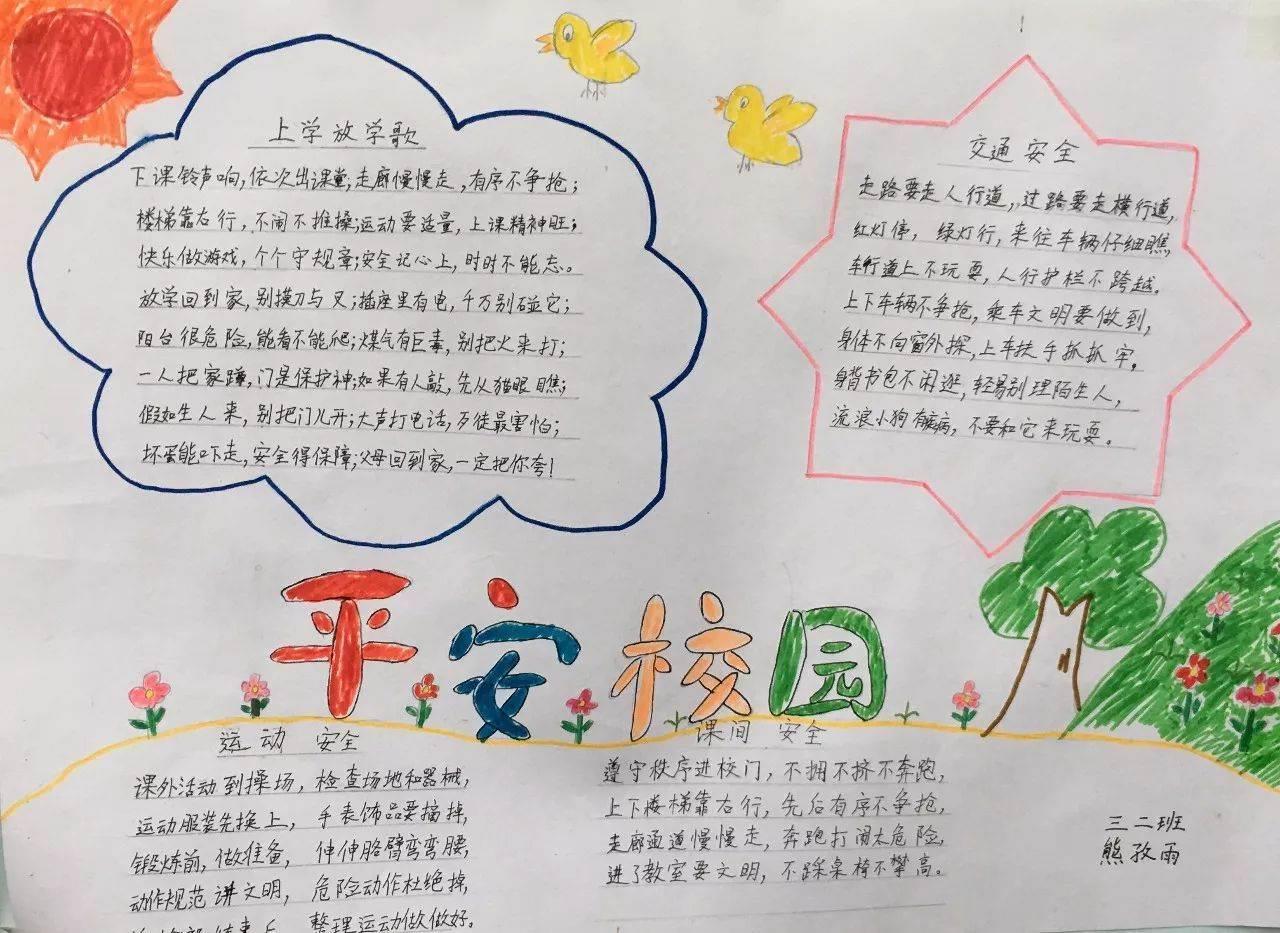 上学放学歌
下课铃声响,依次出课堂;走廊慢慢走,有序不争抢;
楼梯靠右行,不闹不推搡;运动要适量,上课精神旺;
快乐做游戏,个个守规章;安全记心上,时时不能忘。
放学回到家,别摸刀与叉;插座里有电,千万别碰它;
阳台很危险,能看不能爬;煤气有巨毒,别把火来打;
一人把家蹲,门是保护神;如果有人敲,先从猫眼瞧;
假如生人来,别把门儿开;大声打电话,歹徒最害怕;
坏蛋能吓走,安全得保障;父母回到家,一定把你夸!
交通安全
走路要走人行道,过路要走横行道,
红灯停,绿灯行,来往车辆仔细瞧,
车行道上不玩耍,人行护栏不跨越。
上下车辆不争抢,乘车文明要做到,
身体不向窗外探,上车扶手抓抓牢。
身背书包不闲逛,轻易别理陌生人,
流浪小狗有脏病,不要和它来玩耍。
平安校园
运动 安全
课外活动到操场,检查场地和器械,
运动服装先换上,手表饰品要摘掉,
锻炼前,做准备,伸伸胳臂弯弯腰,
动作规范讲文明,危险动作杜绝掉,
结束后,整理运动做做好。
课间 安全
遵守秩序进校门,不拥不挤不奔跑,
上下楼梯靠右行,先后有序不争抢,
走廊通道慢慢走,奔跑打闹太危险,
进了教室要文明,不踩桌椅不攀高。
三二班
熊孜雨